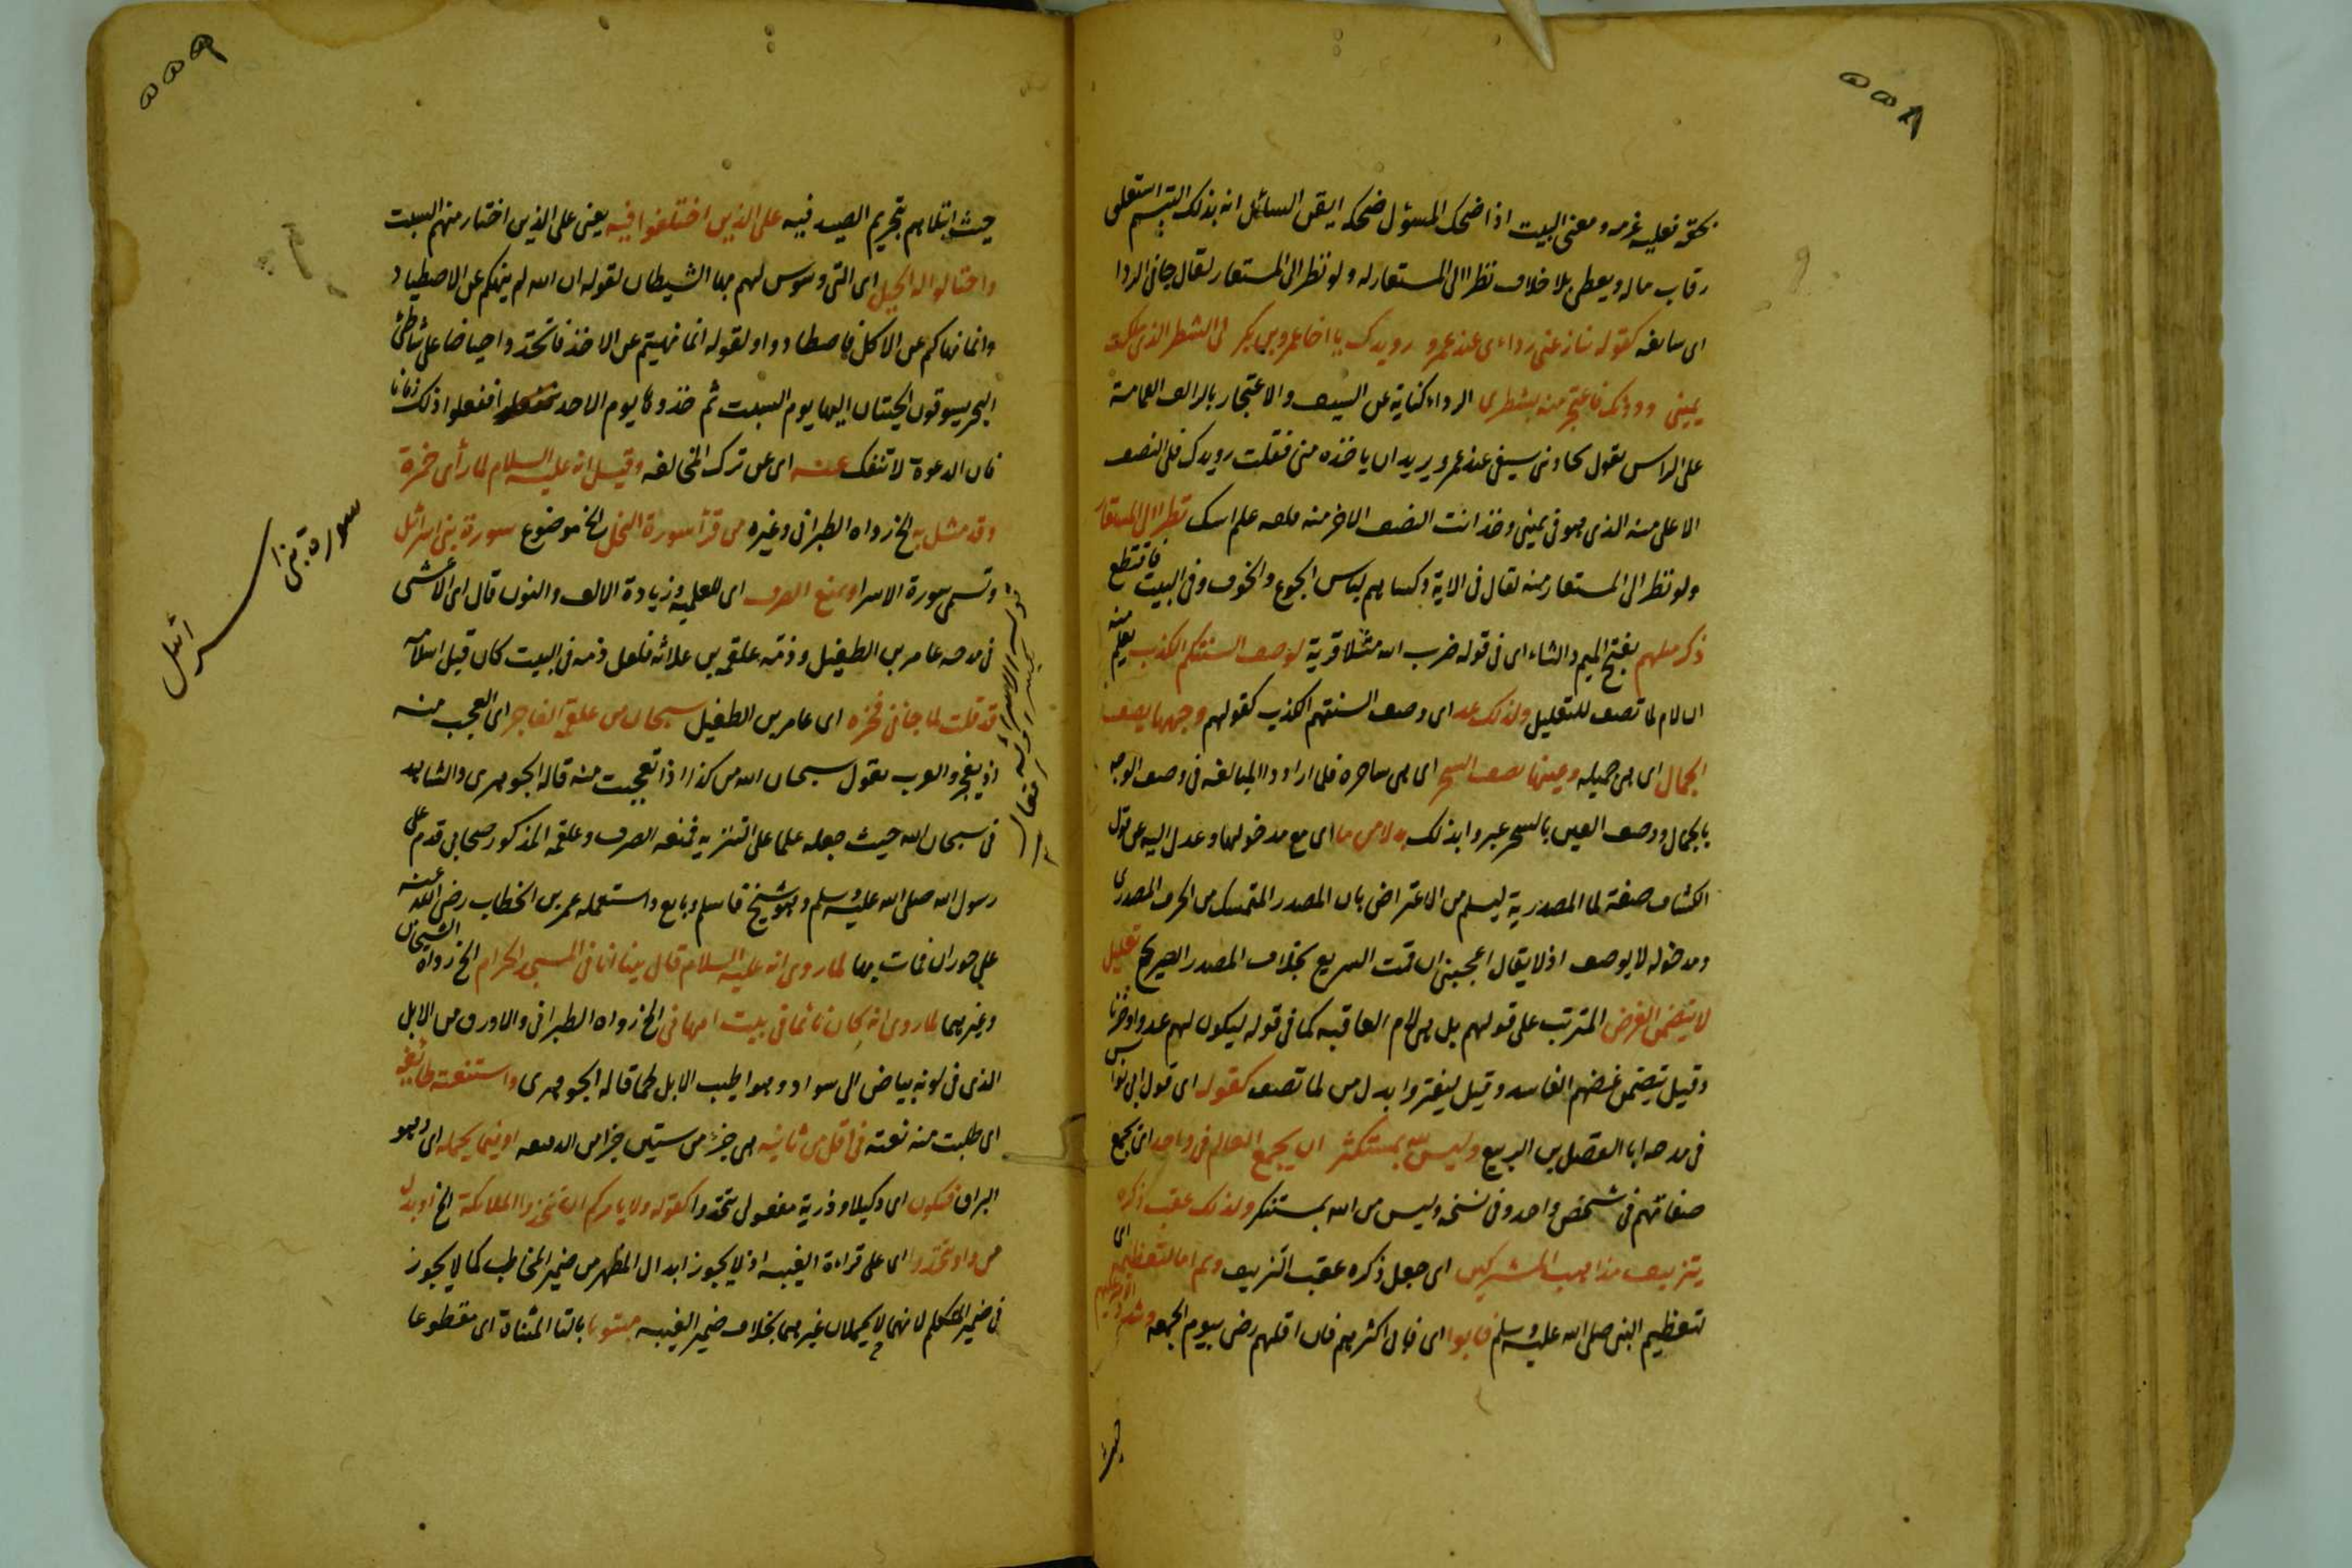 ۵۵۸
بحقه فعليه غرمه ومعنى البيت اذا ضحك المسؤل ضحكه ايقن السائل انه بذلك التبسم استغلق
رقاب ماله ويعطى بلا خلاف نظرا الى المستعار له ولو نظر الى المستعار لقال ضافى الردا
اى سابغه كقوله ينازعنى رداءى عبد عمرو رويدك يا اخا عمرو بن بكر لى الشطر الذى ملكت
يمينى ودونك فاعتجر منه بشطر الرداء كناية عن السيف والاعتجار بالراء لف العمامة
على الراس يقول يحاونى سيفى عبد عمرو يريد ان ياخذه منى فقلت رويدك فلى النصف
الاعلى منه الذى هو فى يمينى وخذ انت النصف الاخر منه فلفه على راسك نظرا الى المستعار
ولو نظر الى المستعار منه لقال فى الاية وكساهم لباس الجوع والخوف وفى البيت فاقتطع منه
ذكر مثلهم بفتح الميم والثاء اى فى قوله ضرب الله مثلا قرية لوصف السنتكم الكذب يعلم
ان لام لما تصف للتعليل ولذلك عد اى وصف السنتهم الكذب كقولهم وجهها يصف
الجمال اى هى جميله وعينها تصف السحر اى هى ساحره فلما ارادوا المبالغه فى وصف الوجه
بالجمال ووصف العين بالسحر عبروا بذلك بدلا من ما اى مع مدخولها وعدل اليه عن قول
الكشاف صفة لما المصدرية ليسلم من الاعتراض بان المصدر المتمسك من الحرف المصدرى
ومدخوله لا يوصف اذ لا يقال اعجبنى ان قمت السريع بخلاف المصدر الصريح تعليل
لا يتضمن الغرض المترتب على قولهم بل هى لام العاقبه كما فى قوله ليكون لهم عدوا وحزنا
وقيل يتضمن غرضهم الفاسد وقيل ليفتروا بدل من لما تصف كقوله اى قول ابى نواس
فى مدحه ابا الفضل بن الربيع وليس لله بمستنكر ان يجمع العالم فى واحد اى يجمع
صفاتهم فى شخص واحد وفى نسخه وليس من الله بمستنكر ولذلك عقب ذكره
بتزييف مذاهب المشركين اى جعل ذكره عقب التزييف وهم اما لتعظيمه اى
لتعظيم النبى صلى الله عليه وسلم فابوا اى فان اكثرهم فان اقلهم رضى بيوم الجمعه وشدد الامر عليهم
حيث
۵۵۹
حيث ابتلاهم بتحريم الصيد فيه على الذين اختلفوا فيه يعنى على الذين اختار منهم السبت
واحتالوا له الحيل اى التى وسوس لهم بها الشيطان لقوله ان الله لم ينهكم عن الاصطياد
وانما نهاكم عن الاكل فاصطادوا ولقوله انما نهيتم عن الاخذ فاتخذوا حياضا على شاطئ
البحر يسوقون الحيتان اليها يوم السبت ثم خذوها يوم الاحد ففعلوا ذلك زمانا
فان الدعوة لا تنفك عنه اى عن ترك المخالفه وقيل انه عليه السلام لما رأى حمزة
وقد مثل به الخ رواه الطبرانى وغيره من قرأ سورة النحل الخ موضوع سورة بنى اسرائل
وتسمى سورة الاسرا ويمنع الصرف اى للعلميه وزيادة الالف والنون قال اى الاعشى
فى مدحه عامر بن الطفيل وذمه علقمه بن علاثه فلعل ذمه فى البيت كان قبل اسلامه
قد قلت لما جانى فخره اى عامر بن الطفيل سبحان من علقمة الفاجر اى العجب منه
اذ يفجر والعرب تقول سبحان الله من كذا اذا تعجبت منه قاله الجوهرى والشاهد
فى سبحان الله حيث جعله علما على التنزيه فمنعه الصرف وعلقمه المذكور صحابى قدم على
رسول الله صلى الله عليه وسلم وهو شيخ فاسلم وبايع واستعمله عمر بن الخطاب رضى الله عنه
على حوران فمات بها لما روى انه عليه السلام قال بينا انا فى المسجد الحرام الخ رواه الشيخان
وغيرهما لما روى انه كان نائما فى بيت ام هانى الخ رواه الطبرانى والاورق من الابل
الذى فى لونه بياض الى سواد وهو اطيب الابل لحما قاله الجوهرى واستنعته طائفة
اى طلبت منه نعته فى اقل من ثانيه هى جزء من ستين جزا من الدقيقه او فيما يحمله اى وهو
البراق فيكون اى وكيلا وذرية مفعولى تتخذوا كقوله ولا يامركم ان تتخذوا الملائكة الخ او بدل
من واو تتخذوا اى على قراءة الغيبه اذ لا يجوز ابدال المظهر من ضمير المخاطب كما لا يجوز
فى ضمير المتكلم لانهما لا يحتملان غيرهما بخلاف ضمير الغيبه مبتوتا بالتا المثناة اى مقطوعا
سورة بنى اسرائل